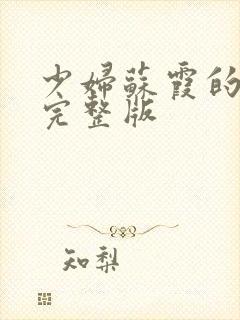 少婦蘇霞的
完整版
知梨